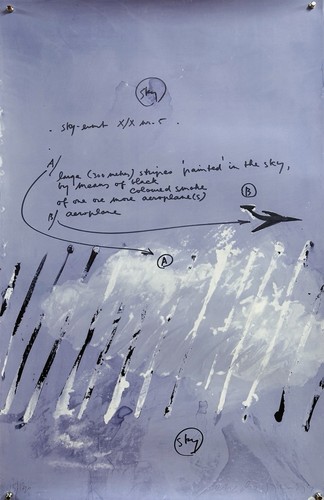 sky
sky-event X/X in.5.
A/
large (300 meter) stripes 'painted' in the sky,
by means of black
coloured smoke
of one or more aeroplane(s)
B/ aeroplane
B
A
sky